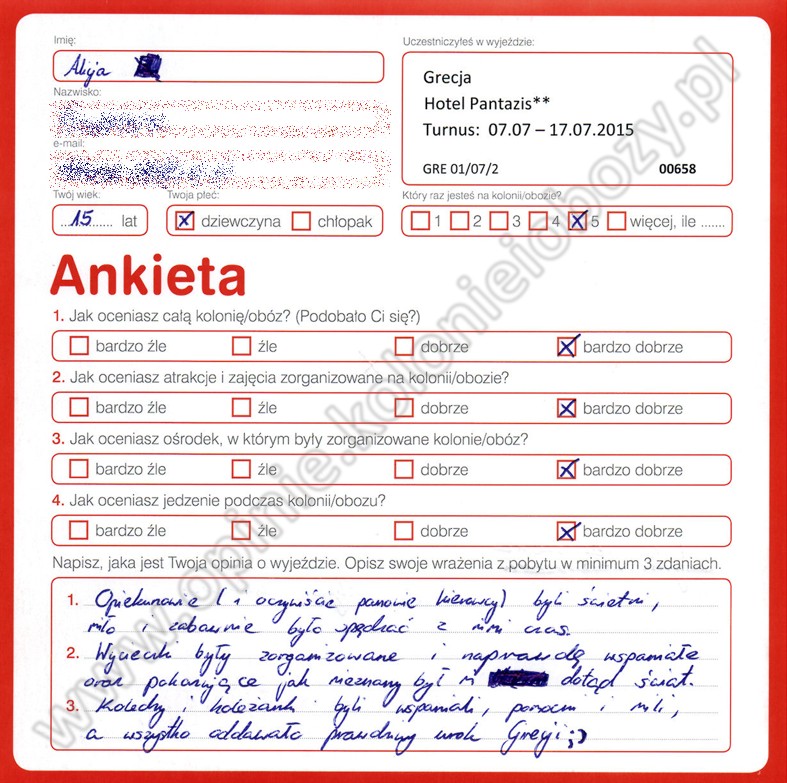 Imię:
Alicja
Uczestniczyłeś w wyjeździe:
Grecja
Hotel Pantazis**
Turnus: 07.07 – 17.07.2015
GRE 01/07/2 00658
Nazwisko:
e-mail:
Twój wiek:
15 lat
Twoja płeć:
dziewczyna chłopak
Który raz jesteś na kolonii/obozie?
1 2 3 4 5 więcej, ile .......
Ankieta
1. Jak oceniasz całą kolonię/obóz? (Podobało Ci się?)
bardzo źle źle dobrze bardzo dobrze
2. Jak oceniasz atrakcje i zajęcia zorganizowane na kolonii/obozie?
bardzo źle źle dobrze bardzo dobrze
3. Jak oceniasz ośrodek, w którym były zorganizowane kolonie/obóz?
bardzo źle źle dobrze bardzo dobrze
4. Jak oceniasz jedzenie podczas kolonii/obozu?
bardzo źle źle dobrze bardzo dobrze
Napisz, jaka jest Twoja opinia o wyjeździe. Opisz swoje wrażenia z pobytu w minimum 3 zdaniach.
1. Opiekunowie (i oczywiście panowie kierowcy) byli świetni,
miło i zabawnie było spędzać z nimi czas.
2. Wycieczki były zorganizowane i naprawdę wspaniałe
oraz pokazujące jak nieznany był mi dotąd świat.
3. Koledzy i koleżanki byli wspaniali, pomocni i mili,
a wszystko oddawało prawdziwy urok Grecji ;)
www.opinie.kolonieiobozy.pl